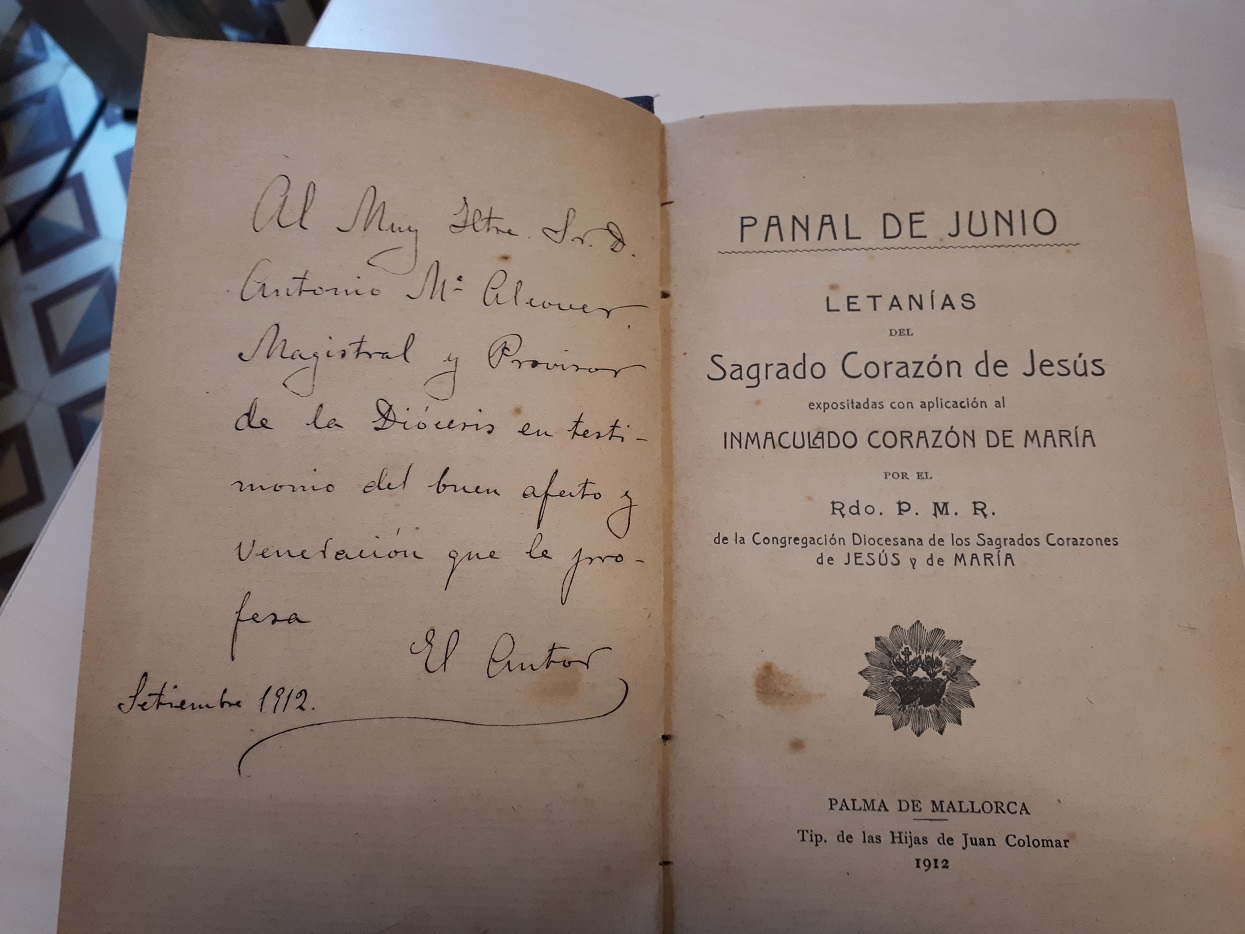 Al Muy Iltre. Sr. D.
Antonio Mª Alcover.
Magistral y Provisor
de la Diócesis en testi-
monio del buen afecto y
veneración que le pro-
fesa
El Autor
Setiembre 1912.
PANAL DE JUNIO
LETANÍAS
DEL
Sagrado Corazón de Jesús
expositadas con aplicación al
INMACULADO CORAZÓN DE MARÍA
POR EL
Rdo. P. M. R.
de la Congregación Diocesana de los Sagrados Corazones
de JESÚS y de MARÍA
PALMA DE MALLORCA
Tip. de las Hijas de Juan Colomar
1912